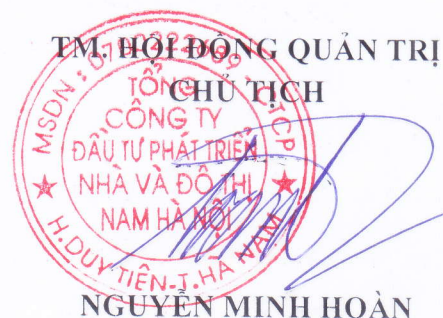 TM. HỘI ĐỒNG QUẢN TRỊ
CHỦ TỊCH
TỔNG
CÔNG TY
ĐẦU TƯ PHÁT TRIỂN
NHÀ VÀ ĐÔ THỊ
NAM HÀ NỘI
H.DUY TIÊN-T.HÀ NAM
NGUYỄN MINH HOÀN